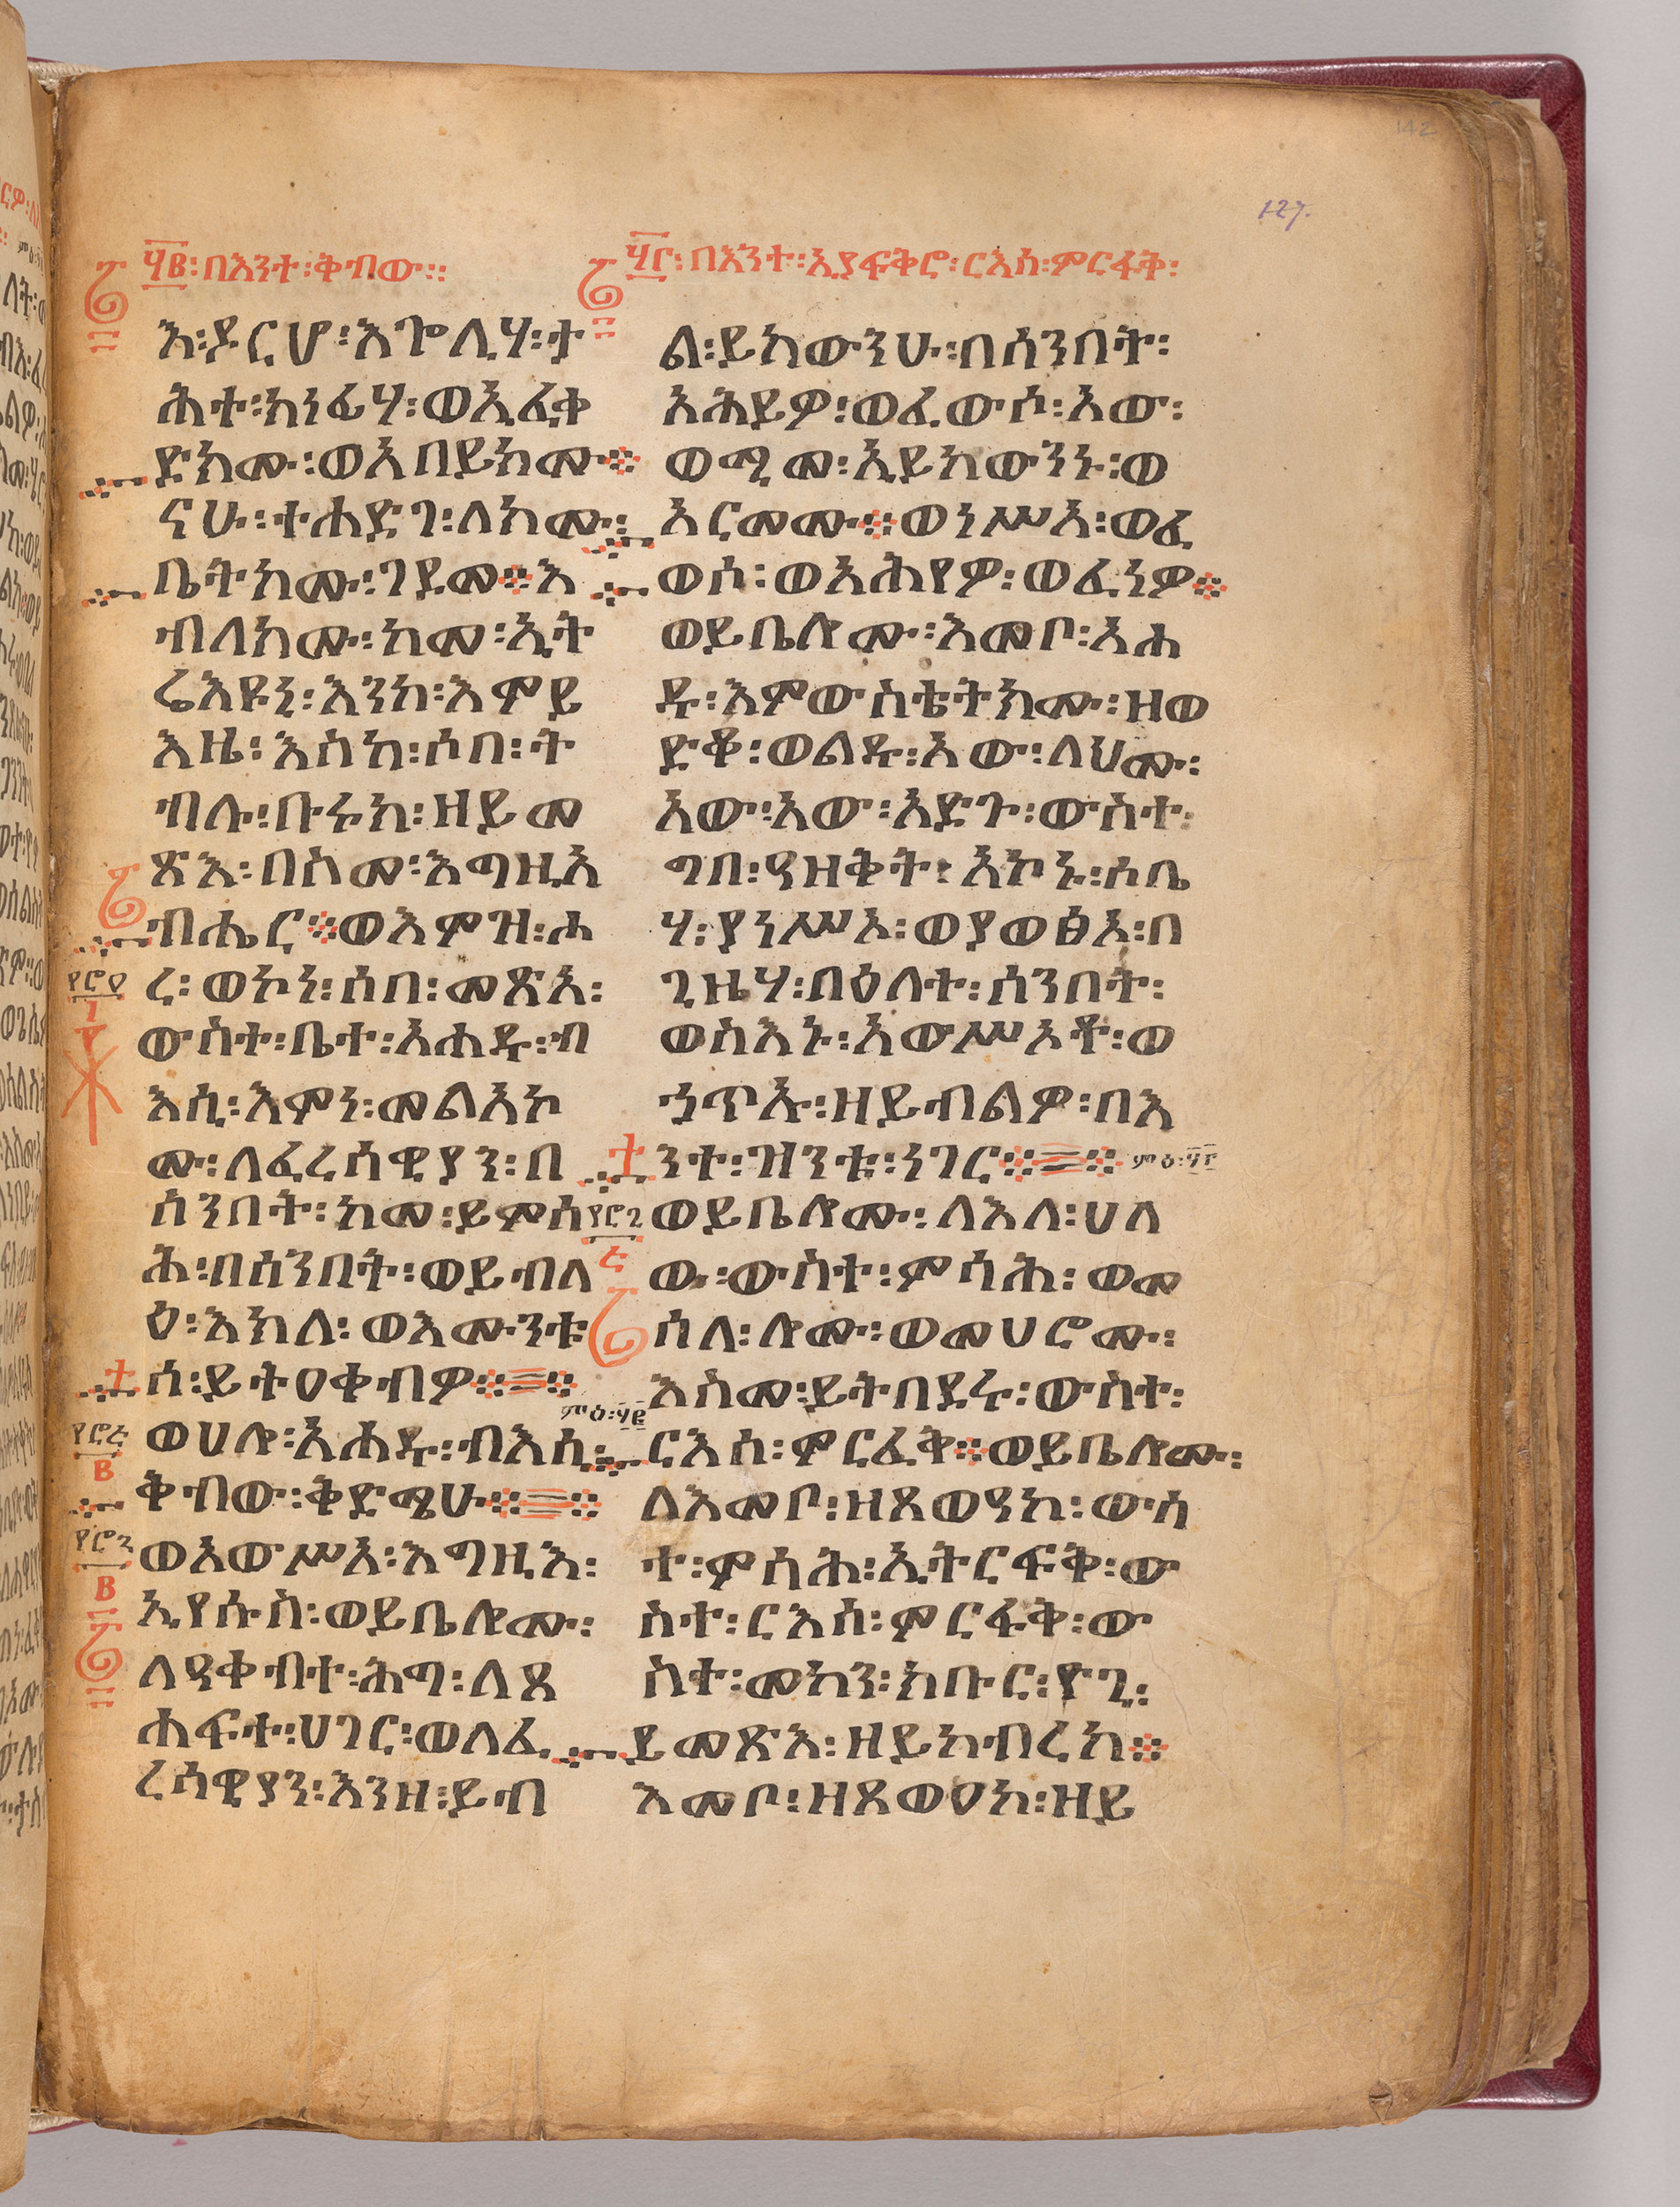 ፶፪፡በእንተ፡ቅብው።
እ፡ዶርሆ፡እጐሊሃ፡ታ
ሕተ፡ክነፊሃ፡ወኢፈቀ
ድክሙ፡ወአበይክሙ።
ናሁ፡ተሐድገ፡ለክሙ፡
ቤትክሙ፡ገዳመ።እ
ብለክሙ፡ከመ፡ኢት
ሬእዩኒ፡እንከ፡እምይ
እዜ፡እስከ፡ሶበ፡ት
ብሉ፡ቡሩክ፡ዘይመ
ጽእ፡በስመ፡እግዚአ
ብሔር።ወእምዝ፡ሖ
ረ፡ወኮነ፡ሶበ፡መጽአ፡
ውስተ፡ቤተ፡አሐዱ፡ብ
እሲ፡እምነ፡መልአኮ
ሙ፡ለፈረሳዊያን፡በ
ሰንበት፡ከመ፡ይምሳ
ሕ፡በሰንበት፡ወይብላ
ዕ፡እክለ፡ወእሙንቱ
ሰ፡ይትዐቀብዎ።
ወሀሎ፡አሐዱ፡ብእሲ፡
ቅብው፡ቅድሜሁ።
ወአውሥአ፡እግዚእ፡
ኢየሱስ፡ወይቤሎሙ፡
ለዓቀብተ፡ሕግ፡ለጸ
ሐፍተ፡ሀገር፡ወለፈ
ረሳዊያን፡እንዘ፡ይብ
፶፫፡በእንተ፡ኢያፍቅሮ፡ርእሰ፡ምርፋቅ፡
127.
142
ል፡ይከውንሁ፡በሰንበት፡
አሕይዎ፡ወፈውሶ፡አው፡
ወሚመ፡ኢይከውንኑ፡ወ
አርመሙ።ወነሥአ፡ወፈ
ወሶ፡ወአሕየዎ፡ወፈነዎ።
ወይቤሎሙ፡እመቦ፡አሐ
ዱ፡እምውስቴትክሙ፡ዘወ
ድቆ፡ወልዱ፡አው፡ላህሙ፡
አው፡አው፡አድጉ፡ውስተ፡
ግበ፡ዓዘቅት፡አኮኑ፡ሶቤ
ሃ፡ያነሥኦ፡ወያወፅኦ፡በ
ጊዜሃ፡በዕለተ፡ሰንበት፡
ወስእኑ፡አውሥኦቶ፡ወ
ኀጥኡ፡ዘይብልዎ፡በእ
ንተ፡ዝንቱ፡ነገር። ምዕ፡፶፫
ወይቤሎሙ፡ለእለ፡ሀለ
ዉ፡ውስተ፡ምሳሕ፡ወመ
ሰለ፡ሎሙ፡ወመሀሮሙ፡
እስመ፡ይትበደሩ፡ውስተ፡
ርእሰ፡ምርፈቅ።ወይቤሎሙ፡
ለእመቦ፡ዘጸወዓከ፡ውስ
ተ፡ምሳሕ፡ኢትርፍቅ፡ው
ስተ፡ርእሰ፡ምርፋቅ፡ው
ስተ፡መካን፡ክቡር፡ዮጊ፡
ይመጽእ፡ዘይከብረከ።
እመቦ፡ዘጸወዐከ፡ዘይ